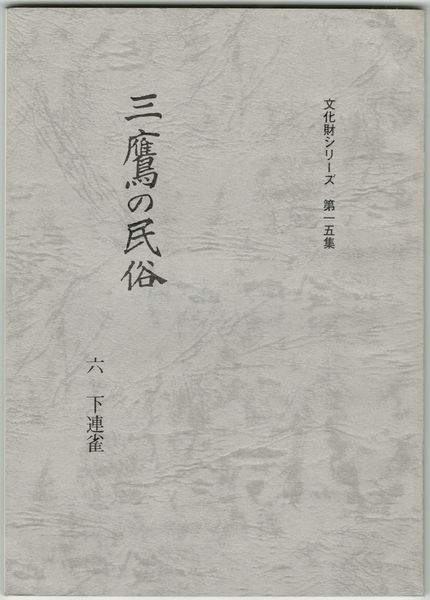 文化財シリーズ 第一五集
三鷹の民俗
六 下連雀